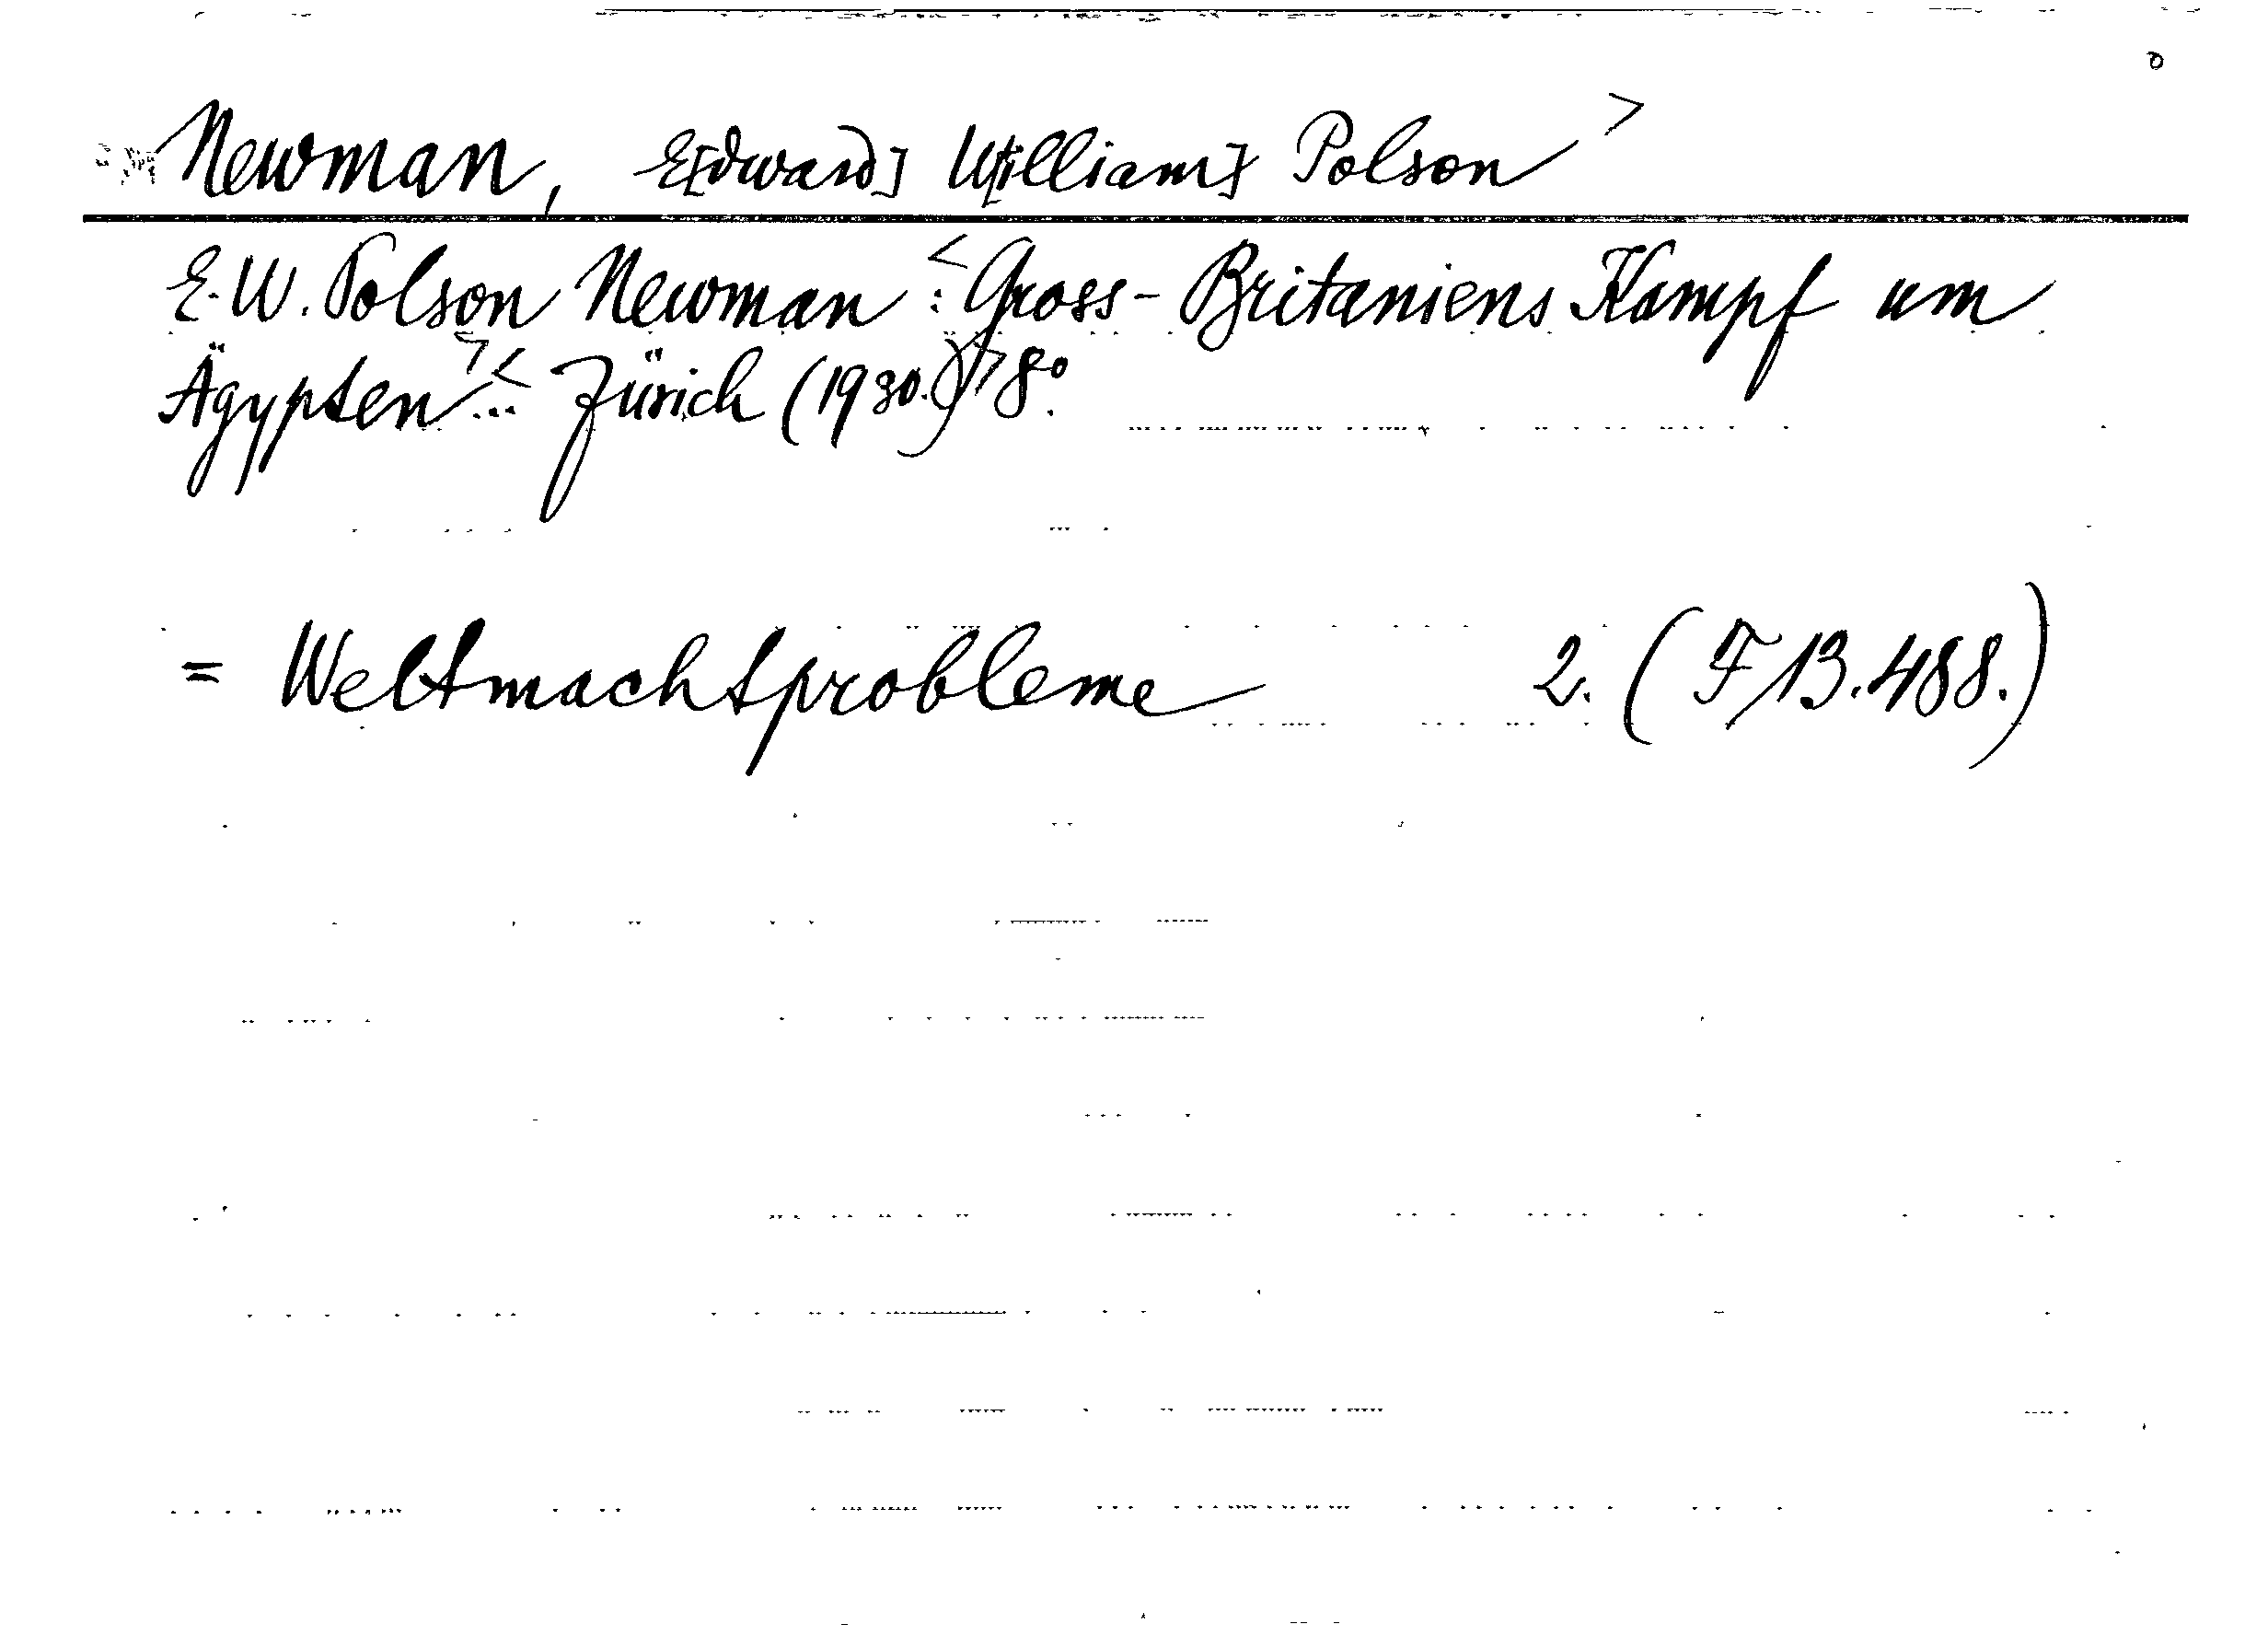 Newman, E[dward] W[illiam] Polson >
E. W. Polson Newman : < Gross-Britaniens Kampf um
Ägypten > ... < Zürich (1930.) > 8°.
= Weltmachtprobleme 2. (F 13.488.)